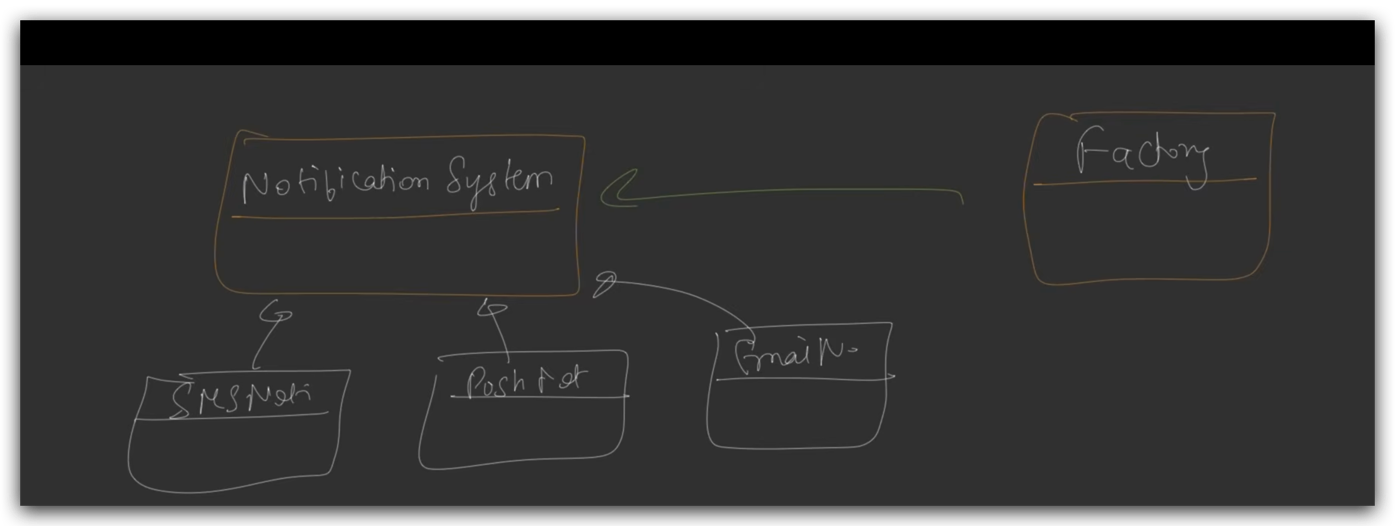 Notification System
Factory
SMSNoti
PushNot
EmailN.